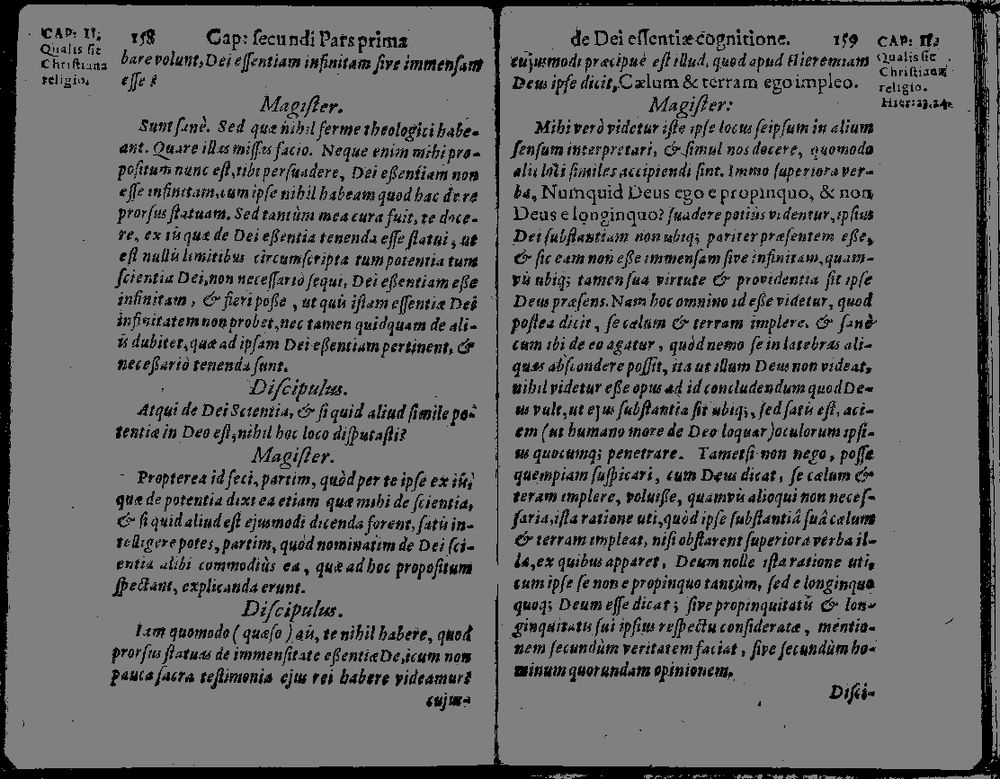 CAP: II.
Qualis sit
Christiana
religio.
158 Cap: secundi Pars prima
bare volunt, Dei essentiam infinitam sive immensam
esse?
Magister.
Sunt sanè. Sed quæ nihil ferme theologici habe-
ant. Quare illas missas facio. Neque enim mihi pro-
positum nunc est, tibi persuadere, Dei eßentiam non
esse infinitam, cum ipse nihil habeam quod hac de re
prorsus statuam. Sed tantùm mea cura fuit, te doce-
re, ex iis quæ de Dei eßentia tenenda esse statui, ut
est nullis limitibus circumscripta tum potentia tum
scientia Dei, non necessariò sequi, Dei eßentiam eße
infinitam, & fieri poße, ut quis istam essentiæ Dei
infinitatem non probet, nec tamen quidquam de ali-
is dubitet, quæ ad ipsam Dei eßentiam pertinent, &
neceßariò tenenda sunt.
Discipulus.
Atqui de Dei Scientia, & si quid aliud simile po-
tentiæ in Deo est, nihil hoc loco disputasti?
Magister.
Propterea id feci, partim, quòd per te ipse ex iis,
quæ de potentia dixi ea etiam quæ mihi de scientia,
& si quid aliud est ejusmodi dicenda forent, satis in-
telligere potes, partim, quòd nominatim de Dei sci-
entia alibi commodiùs ea, quæ ad hoc propositum
spectant, explicanda erunt.
Discipulus.
Iam quomodo (quæso) ais, te nihil habere, quod
prorsus statuas de immensitate eßentiæ Dei, cum non
pauca sacra testimonia ejus rei habere videamur?
cujus-
de Dei essentiæ cognitione. 159
CAP: II.
Qualis sit
Christiana
religio.
Hier: 23, 24.
cujusmodi præcipuè est illud, quod apud Hieremiam
Deus ipse dicit, Cælum & terram ego impleo.
Magister:
Mihi verò videtur iste ipse locus seipsum in alium
sensum interpretari, & simul nos docere, quomodo
alii loci similes accipiendi sint. Immo superiora ver-
ba, Numquid Deus ego e propinquo, & non
Deus e longinquo? suadere potiùs videntur, ipsius
Dei substantiam non ubiq; pariter præsentem eße,
& sic eam non eße immensam sive infinitam, quam-
vis ubiq; tamen sua virtute & providentia sit ipse
Deus præsens. Nam hoc omnino id eße videtur, quod
postea dicit, se cælum & terram implere. & sanè
cum ibi de eo agatur, quòd nemo se in latebras ali-
quas abscondere possit, ita ut illum Deus non videat,
nihil videtur eße opus ad id concludendum quod De-
us vult, ut ejus substantia sit ubiq;, sed satis est, aci-
em (ut humano more de Deo loquar) oculorum ipsi-
us quocumq; penetrare. Tametsi non nego, posse
quempiam suspicari, cum Deus dicat, se cælum &
teram implere, voluiße, quamvis alioqui non neces-
saria, ista ratione uti, quòd ipse substantiâ suâ cælum
& terram impleat, nisi obstarent superiora verba il-
la, ex quibus apparet, Deum nolle ista ratione uti,
cum ipse se non e propinquo tantùm, sed e longinquo
quoq; Deum esse dicat; sive propinquitatis & lon-
ginquitatis sui ipsius respectu consideratæ, mentio-
nem secundùm veritatem faciat, sive secundùm ho-
minum quorundam opinionem.
Disci-